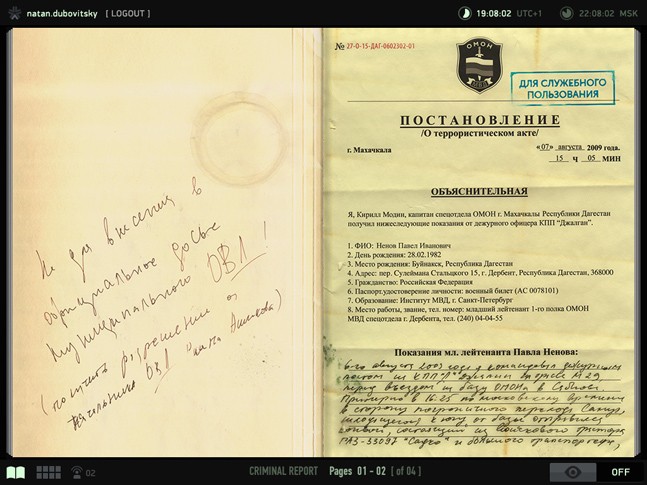 natan.dubovitsky [ LOGOUT ]
19:08:02 UTC+1
22:08:02 MSK
Не для внесения в
официальное досье
муниципального ОВД!
(получить разрешение от
начальника ОВД
№ 27-О-15-ДАГ-0602302-01
ОМОН
МВД
ДЛЯ СЛУЖЕБНОГО
ПОЛЬЗОВАНИЯ
ПОСТАНОВЛЕНИЕ
/О террористическом акте/
г. Махачкала
«07» августа 2009 года.
15 Ч 05 МИН
ОБЪЯСНИТЕЛЬНАЯ
Я, Кирилл Модин, капитан спецотдела ОМОН г. Махачкалы Республики Дагестан
получил нижеследующие показания от дежурного офицера КПП “Джалган”.
1. ФИО: Ненов Павел Иванович
2. День рождения: 28.02.1982
3. Место рождения: Буйнакск, Республика Дагестан
4. Адрес: пер. Сулеймана Стальцкого 15, г. Дербент, Республика Дагестан, 368000
5. Гражданство: Российская Федерация
6. Паспорт.удостоверение личности: военный билет (АС 0078101)
7. Образование: Институт МВД, г. Санкт-Петербург
8. Место работы, звание, тел. номер: младший лейтенант 1-го полка ОМОН
МВД спецотдела г. Дербента, тел. (240) 04-04-55
Показания мл. лейтенанта Павла Ненова:
6-го августа 2009 года я командовал дежурным
постом на КПП "Джалган" на трассе М29
перед въездом на базу ОМОНа в
Примерно в 16:25 по московскому времени
в сторону пограничного перехода Самур,
находящегося к югу от базы отправился
конвой, состоящий из войскового
ГАЗ-33097 "Садко" и больного транспортера,
02
CRIMINAL REPORT Pages 01 - 02 [ of 04 ]
OFF